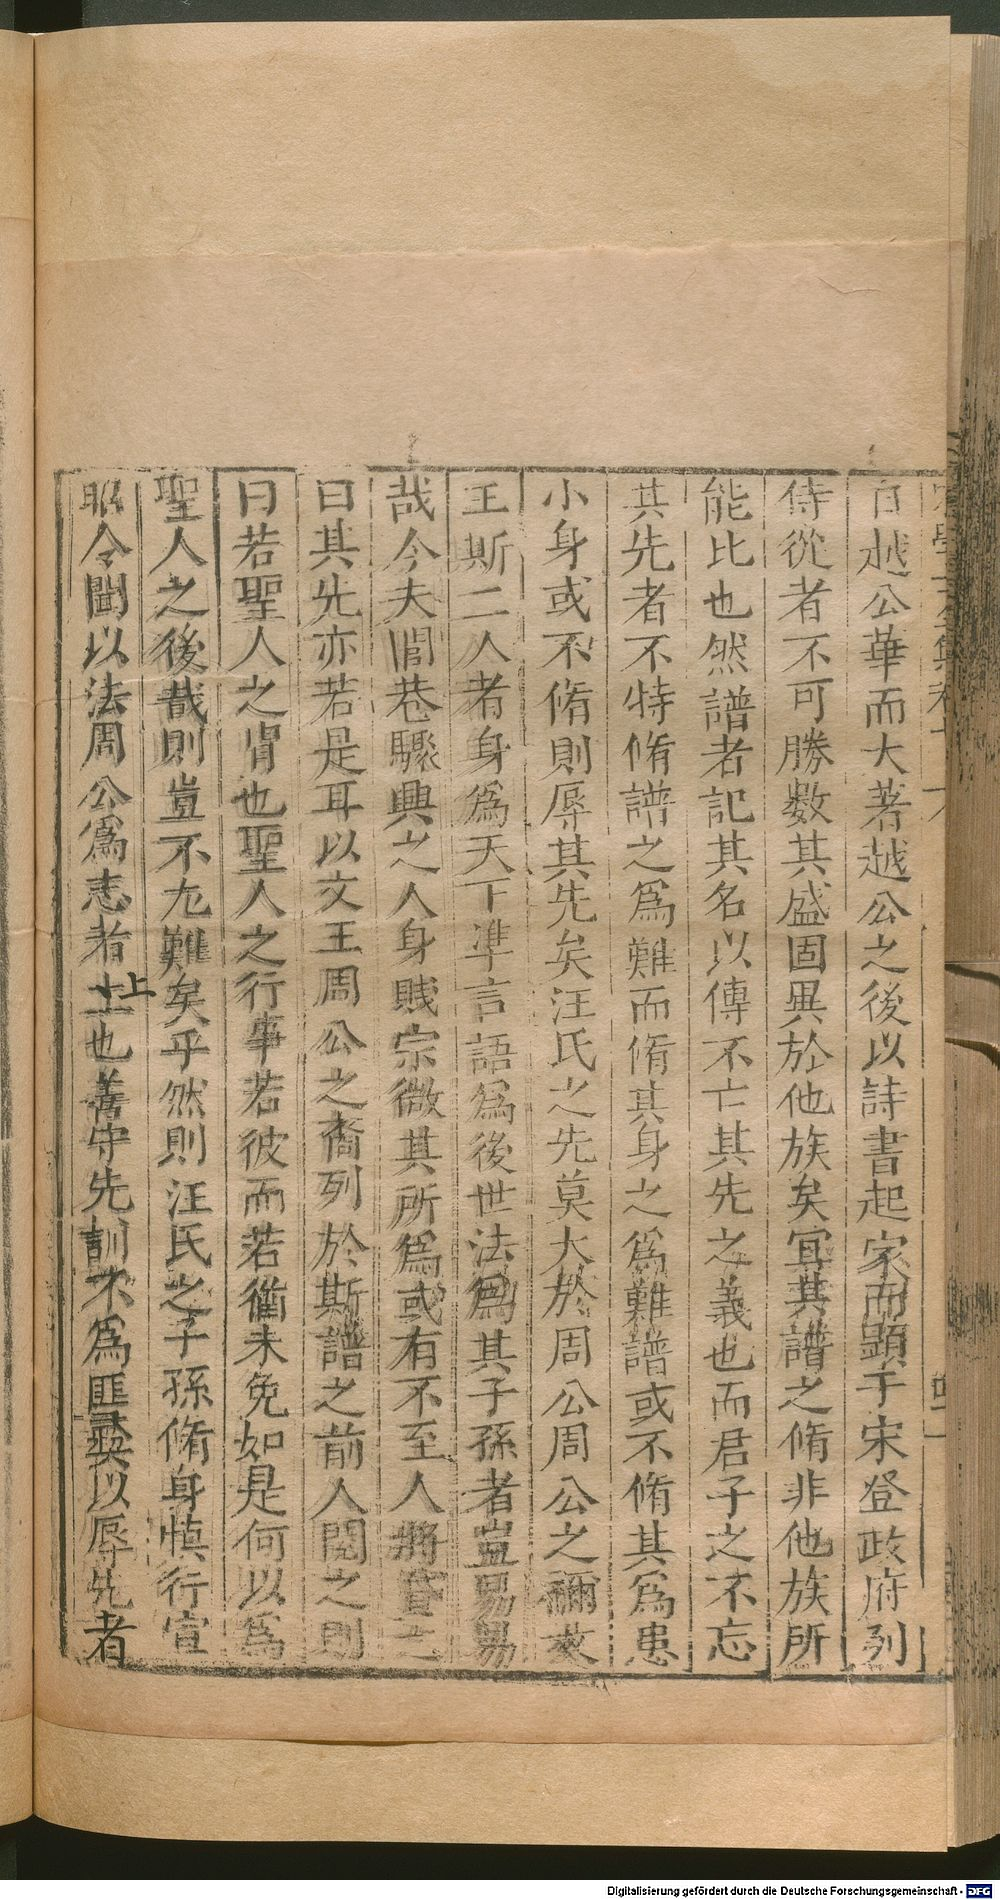 自越公華而大著越公之後以詩書起家而顕于宋登政府列
侍從者不可勝數其盛固異於他族矣冝其譜之脩非他族所
能比也然譜者記其名以傳不亡其先之義也而君子之不忘
其先者不特脩譜之爲難而脩其身之爲難譜或不脩其爲患
小身或不脩則辱其先矣汪氏之先莫大於周公周公之禰文
王斯二人者身爲天下凖言語爲後世法爲其子孫者豈易易
哉今夫閭巷驟興之人身賤宗微其所爲或有不至人將貰之
曰其先亦若是耳以文王周公之裔列於斯譜之前人閱之則
曰若聖人之胄也聖人之行事若彼而若衟未免如是何以爲
聖人之後哉則豈不尢難矣乎然則汪氏之子孫脩身慎行宣
昭令聞以法周公爲志者上也善守先訓不爲匪彛以辱先者
Digitalisierung gefördert durch die Deutsche Forschungsgemeinschaft - DFG